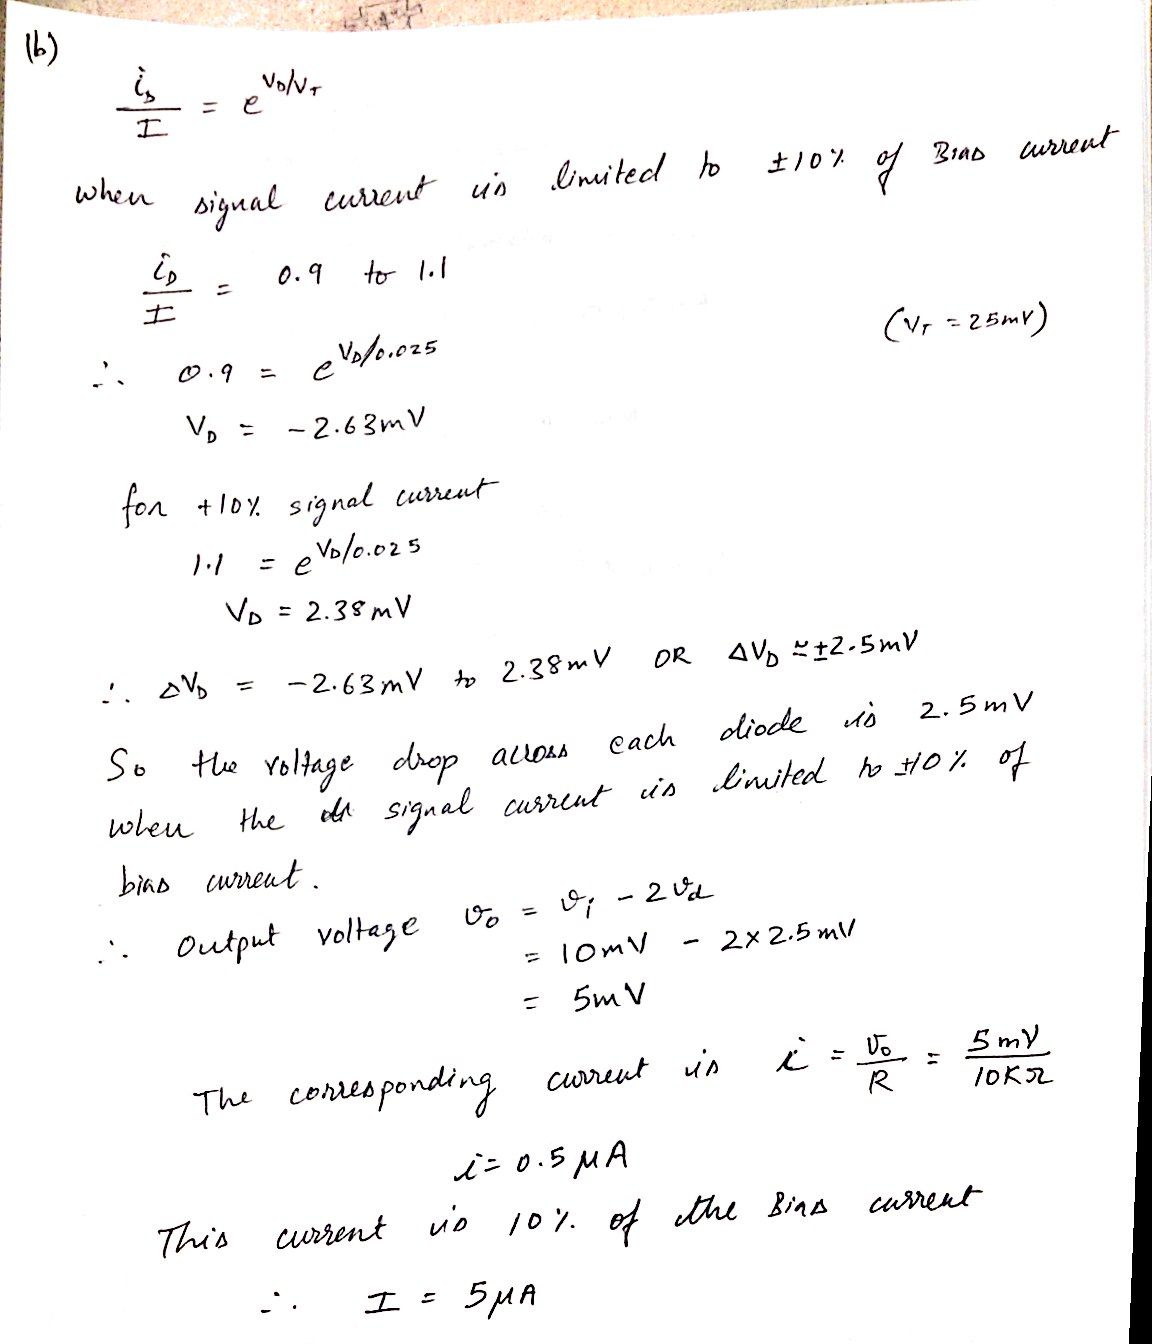 (b)
i_D/I = e^(V_D/V_T)
when signal current is limited to ±10% of Bias current
i_D/I = 0.9 to 1.1
(V_T = 25mV)
∴ 0.9 = e^(V_D/0.025)
V_D = -2.63mV
for +10% signal current
1.1 = e^(V_D/0.025)
V_D = 2.38mV
∴ ΔV_D = -2.63mV to 2.38mV OR ΔV_D ≅ ±2.5mV
So the voltage drop across each diode is 2.5mV
when the signal current is limited to ±10% of
bias current.
∴ Output voltage v_o = v_i - 2v_d
= 10mV - 2×2.5mV
= 5mV
The corresponding current is i = v_o/R = 5mV/10KΩ
i = 0.5μA
This current is 10% of the Bias current
∴ I = 5μA